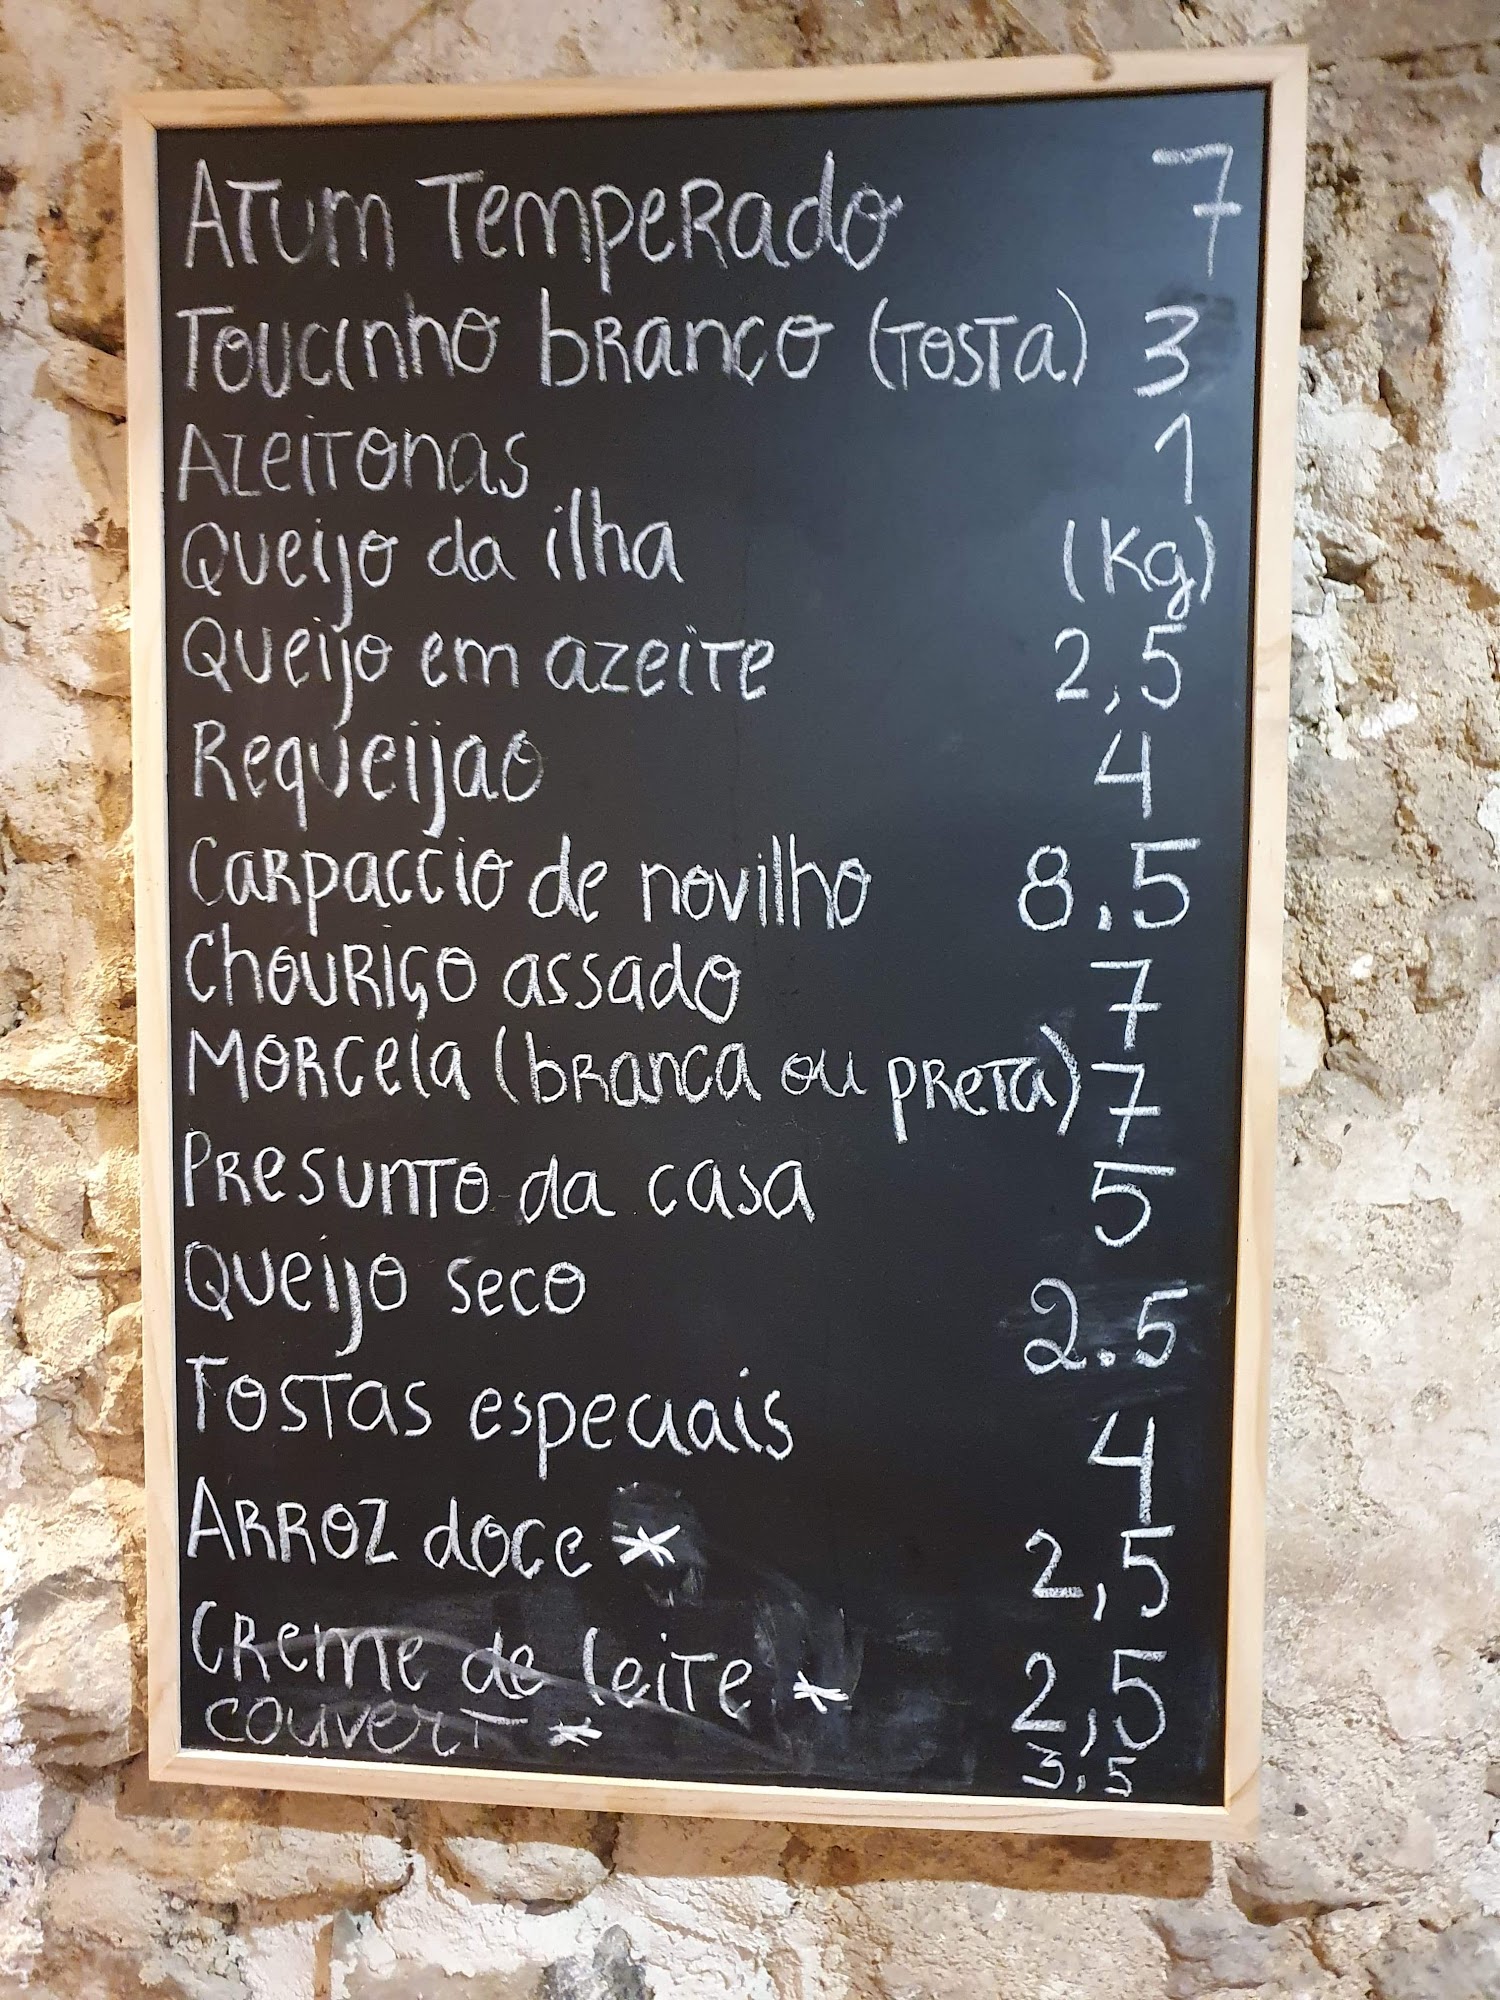 Atum Temperado 7
Toucinho branco (tosta) 3
Azeitonas 1
Queijo da ilha (Kg)
Queijo em azeite 2,5
Requeijao 4
Carpaccio de novilho 8.5
Chouriço assado 7
Morcela (branca ou preta) 7
Presunto da casa 5
Queijo seco 2.5
Tostas especiais 4
Arroz doce * 2,5
Creme de leite * 2,5
couvert * 3.5